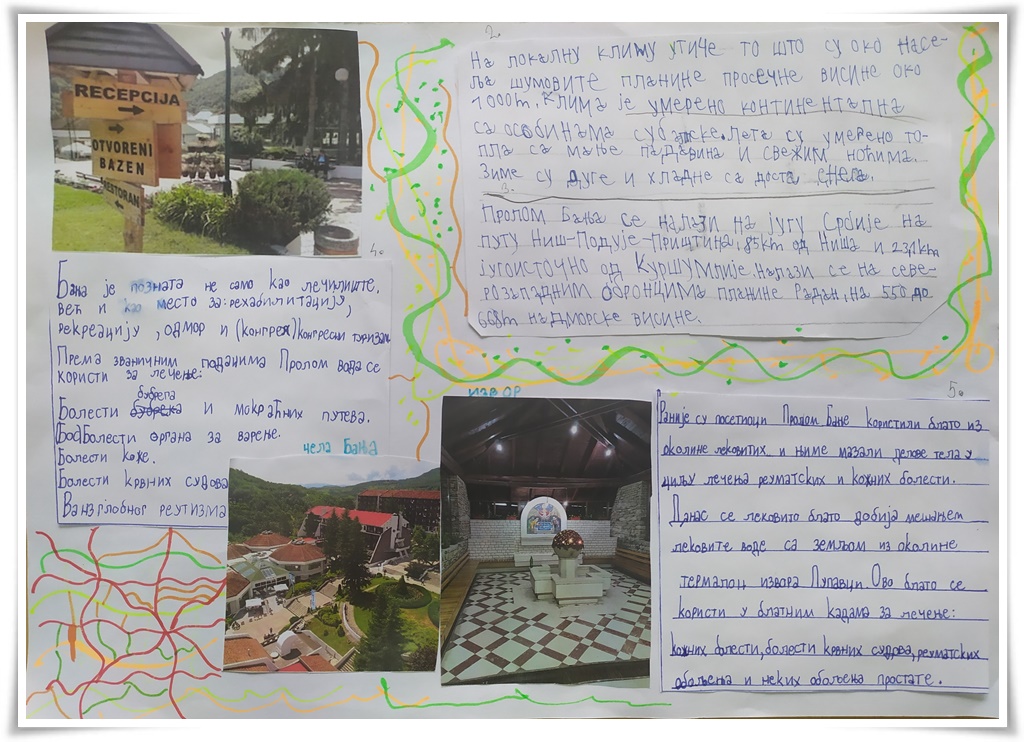 RECEPCIJA
OTVORENI
BAZEN
RESTORAN
4.
Бања је позната не само као лечилиште,
већ и као место за: рехабилитацију,
рекреацију, одмор и (конгрея) конгресни туризам
Према званичним подацима Пролом вода се
користи за лечење:
бубрега
Болести бубрека и мокраћних путева.
Бод Болести органа за варење.
Болести коже.
Болести крвних судова
Ванзглобног реутизма
2.
На локалну климу утиче то што су око насе-
ља шумовите планине просечне висине око
1000m. Клима је умерено континентална
са особинама субалпске. Лета су умерено то-
пла са мање падавина и свежим ноћима.
Зиме су дуге и хладне са доста снега.
3.
Пролом Бања се налази на југу Србије на
путу Ниш-Подује-Приштина, 85km од Ниша и 23,1km
југоисточно од Куршумлије. Налази се на севе-
розападним обронцима планине Радан, на 550 до
668m надморске висине.
чела Бања
извор
5.
Раније су посетиоци Пролом Бање користили блато из
околине лековитих и њиме мазали делове тела у
циљу лечења реуматских и кожних болести.
Данас се лековито блато добија мешањем
лековите воде са земљом из околине
термалоц извора Пупавци. Ово блато се
користи у блатним кадама за лечење:
кожних блести, болести крвних судова, реуматских
обољења и неких обољења простате.